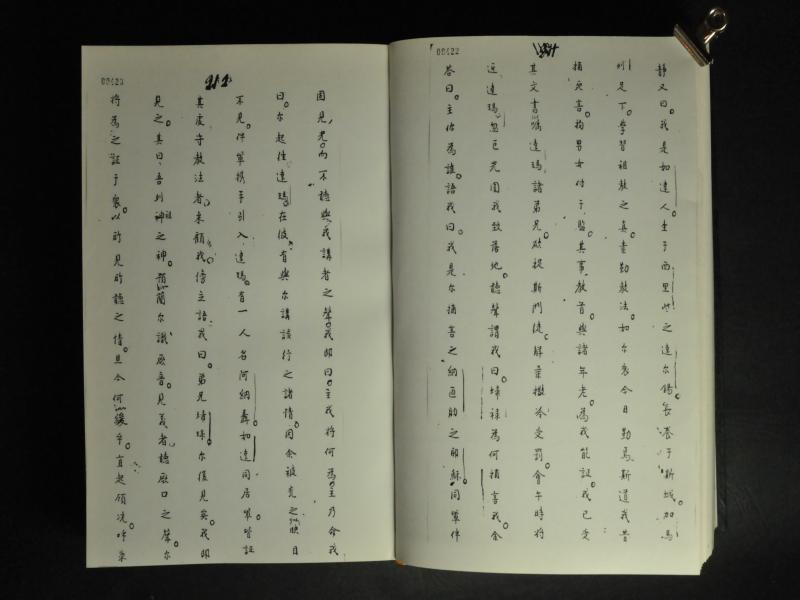 00422
靜又曰。我是如達人生于西里些之達尔錫長養于斯城。加馬
列足下。學習祖教之真奎勤敎法。如尔衆今日勤焉斯道我昔
捕究害拘男女付于監其事教首與諸年老。為我能証。我已受
其文書嘱達瑪諸弟兄欲捉斯門徒解柔撒冷受罰。會午時將
近達瑪。忽巨光圍我致落地。聽聲謂我曰。掃祿為何捕害我。余
荅曰。主你為誰語我曰。我是尔捕害之納匝肋之耶穌。同軰伴
00423
因見光。而不聽與我講者之聲。我即曰。主我將何為。主乃命我
曰。尔起徃達瑪在彼。有與尔講該行之諸情。因余被光之映目
不見。伴軰携手引入達瑪。有一人名阿納聶如達同居軰皆証
其虔守教法者。来顧我。傍立語我曰。弟兄掃祿尔復見矣。我即
見之。其曰。吾列祖神之神。預簡尔識厥旨。見義者。聽厥口之聲。尔
將為之証于衆。以所見所聽之情。且今何緩乎。直起領洗。吁